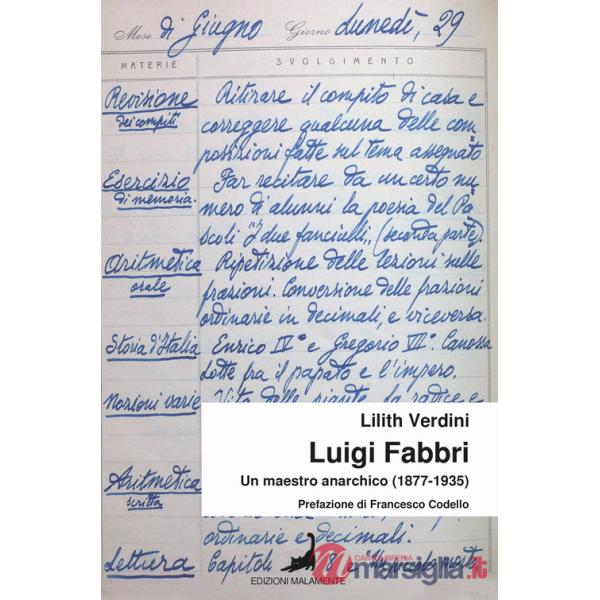 Mese di Giugno Giorno Lunedì, 29
MATERIE SVOLGIMENTO
Revisione Ritirare il compito di casa e
dei compiti correggere qualcuna delle com=
posizioni fatte sul tema assegnato
Esercizio Far recitare da un certo nu=
di memoria. mero di alunni la poesia del Pa=
scoli "I due fanciulli" (seconda parte).
Aritmetica Ripetizione delle lezioni sulle
orale frazioni. Conversione delle frazioni
ordinarie in decimali, e viceversa.
Storia d'Italia Enrico IV° e Gregorio VII°. Canossa
Lotte fra il papato e l'impero.
Nozioni varie Vita delle piante. La radice e
Lilith Verdini
Luigi Fabbri
Un maestro anarchico (1877-1935)
Prefazione di Francesco Codello
Aritmetica
scritta
ordinarie e decimali.
Lettura Capitoli 8 e
EDIZIONI MALAMENTE
CARTOLIBRERIA
marsiglia.it